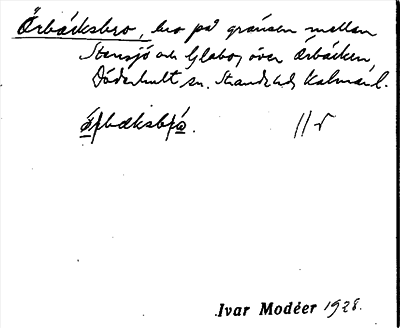 Örbäcksbro, bro på gränsen mellan
Stensjö och Glabo, över Örbäcken,
Döderhult sn. Stranda hd, Kalmar l.
Ivar Modéer 1928.